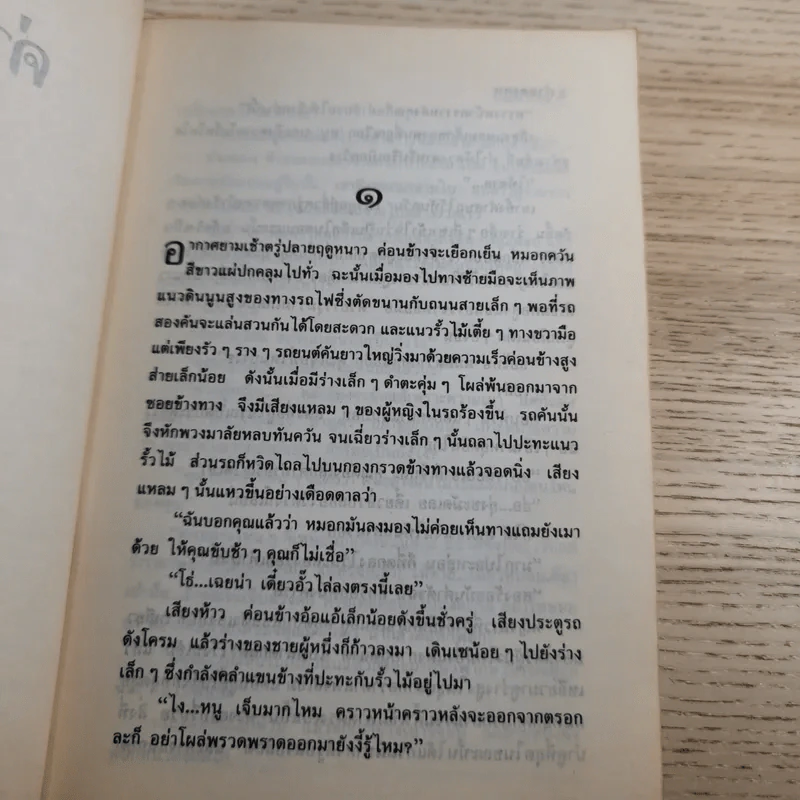 ๑
อากาศยามเช้าตรู่ปลายฤดูหนาว ค่อนข้างจะเยือกเย็น หมอกควัน
สีขาวแผ่ปกคลุมไปทั่ว ฉะนั้นเมื่อมองไปทางซ้ายมือจะเห็นภาพ
แนวดินนูนสูงของทางรถไฟซึ่งตัดขนานกับถนนสายเล็ก ๆ พอที่รถ
สองคันจะแล่นสวนกันได้โดยสะดวก และแนวรั้วไม้เตี้ย ๆ ทางขวามือ
แต่เพียงรัว ๆ ราง ๆ รถยนต์คันยาวใหญ่วิ่งมาด้วยความเร็วค่อนข้างสูง
ส่ายเล็กน้อย ดังนั้นเมื่อมีร่างเล็ก ๆ ดำตะคุ่ม ๆ โผล่พ้นออกมาจาก
ซอยข้างทาง จึงมีเสียงแหลม ๆ ของผู้หญิงในรถร้องขึ้น รถคันนั้น
จึงหักพวงมาลัยหลบทันควัน จนเฉี่ยวร่างเล็ก ๆ นั้นถลาไปปะทะแนว
รั้วไม้ ส่วนรถก็หวิดไถลไปบนกองกรวดข้างทางแล้วจอดนิ่ง เสียง
แหลม ๆ นั้นแหวขึ้นอย่างเดือดดาลว่า
“ฉันบอกคุณแล้วว่า หมอกมันลงมองไม่ค่อยเห็นทางแถมยังเมา
ด้วย ให้คุณขับช้า ๆ คุณก็ไม่เชื่อ”
“โธ่...เฉยน่า เดี๋ยวอั๊วไล่ลงตรงนี้เลย”
เสียงห้าว ค่อนข้างอ้อแอ้เล็กน้อยดังขึ้นชั่วครู่ เสียงประตูรถ
ดังโครม แล้วร่างของชายผู้หนึ่งก็ก้าวลงมา เดินเซน้อย ๆ ไปยังร่าง
เล็ก ๆ ซึ่งกำลังคลำแขนข้างที่ปะทะกับรั้วไม้อยู่ไปมา
“ไง...หนู เจ็บมากไหม คราวหน้าคราวหลังจะออกจากตรอก
ละก็ อย่าโผล่พรวดพราดออกมายังงี้รู้ไหม?”